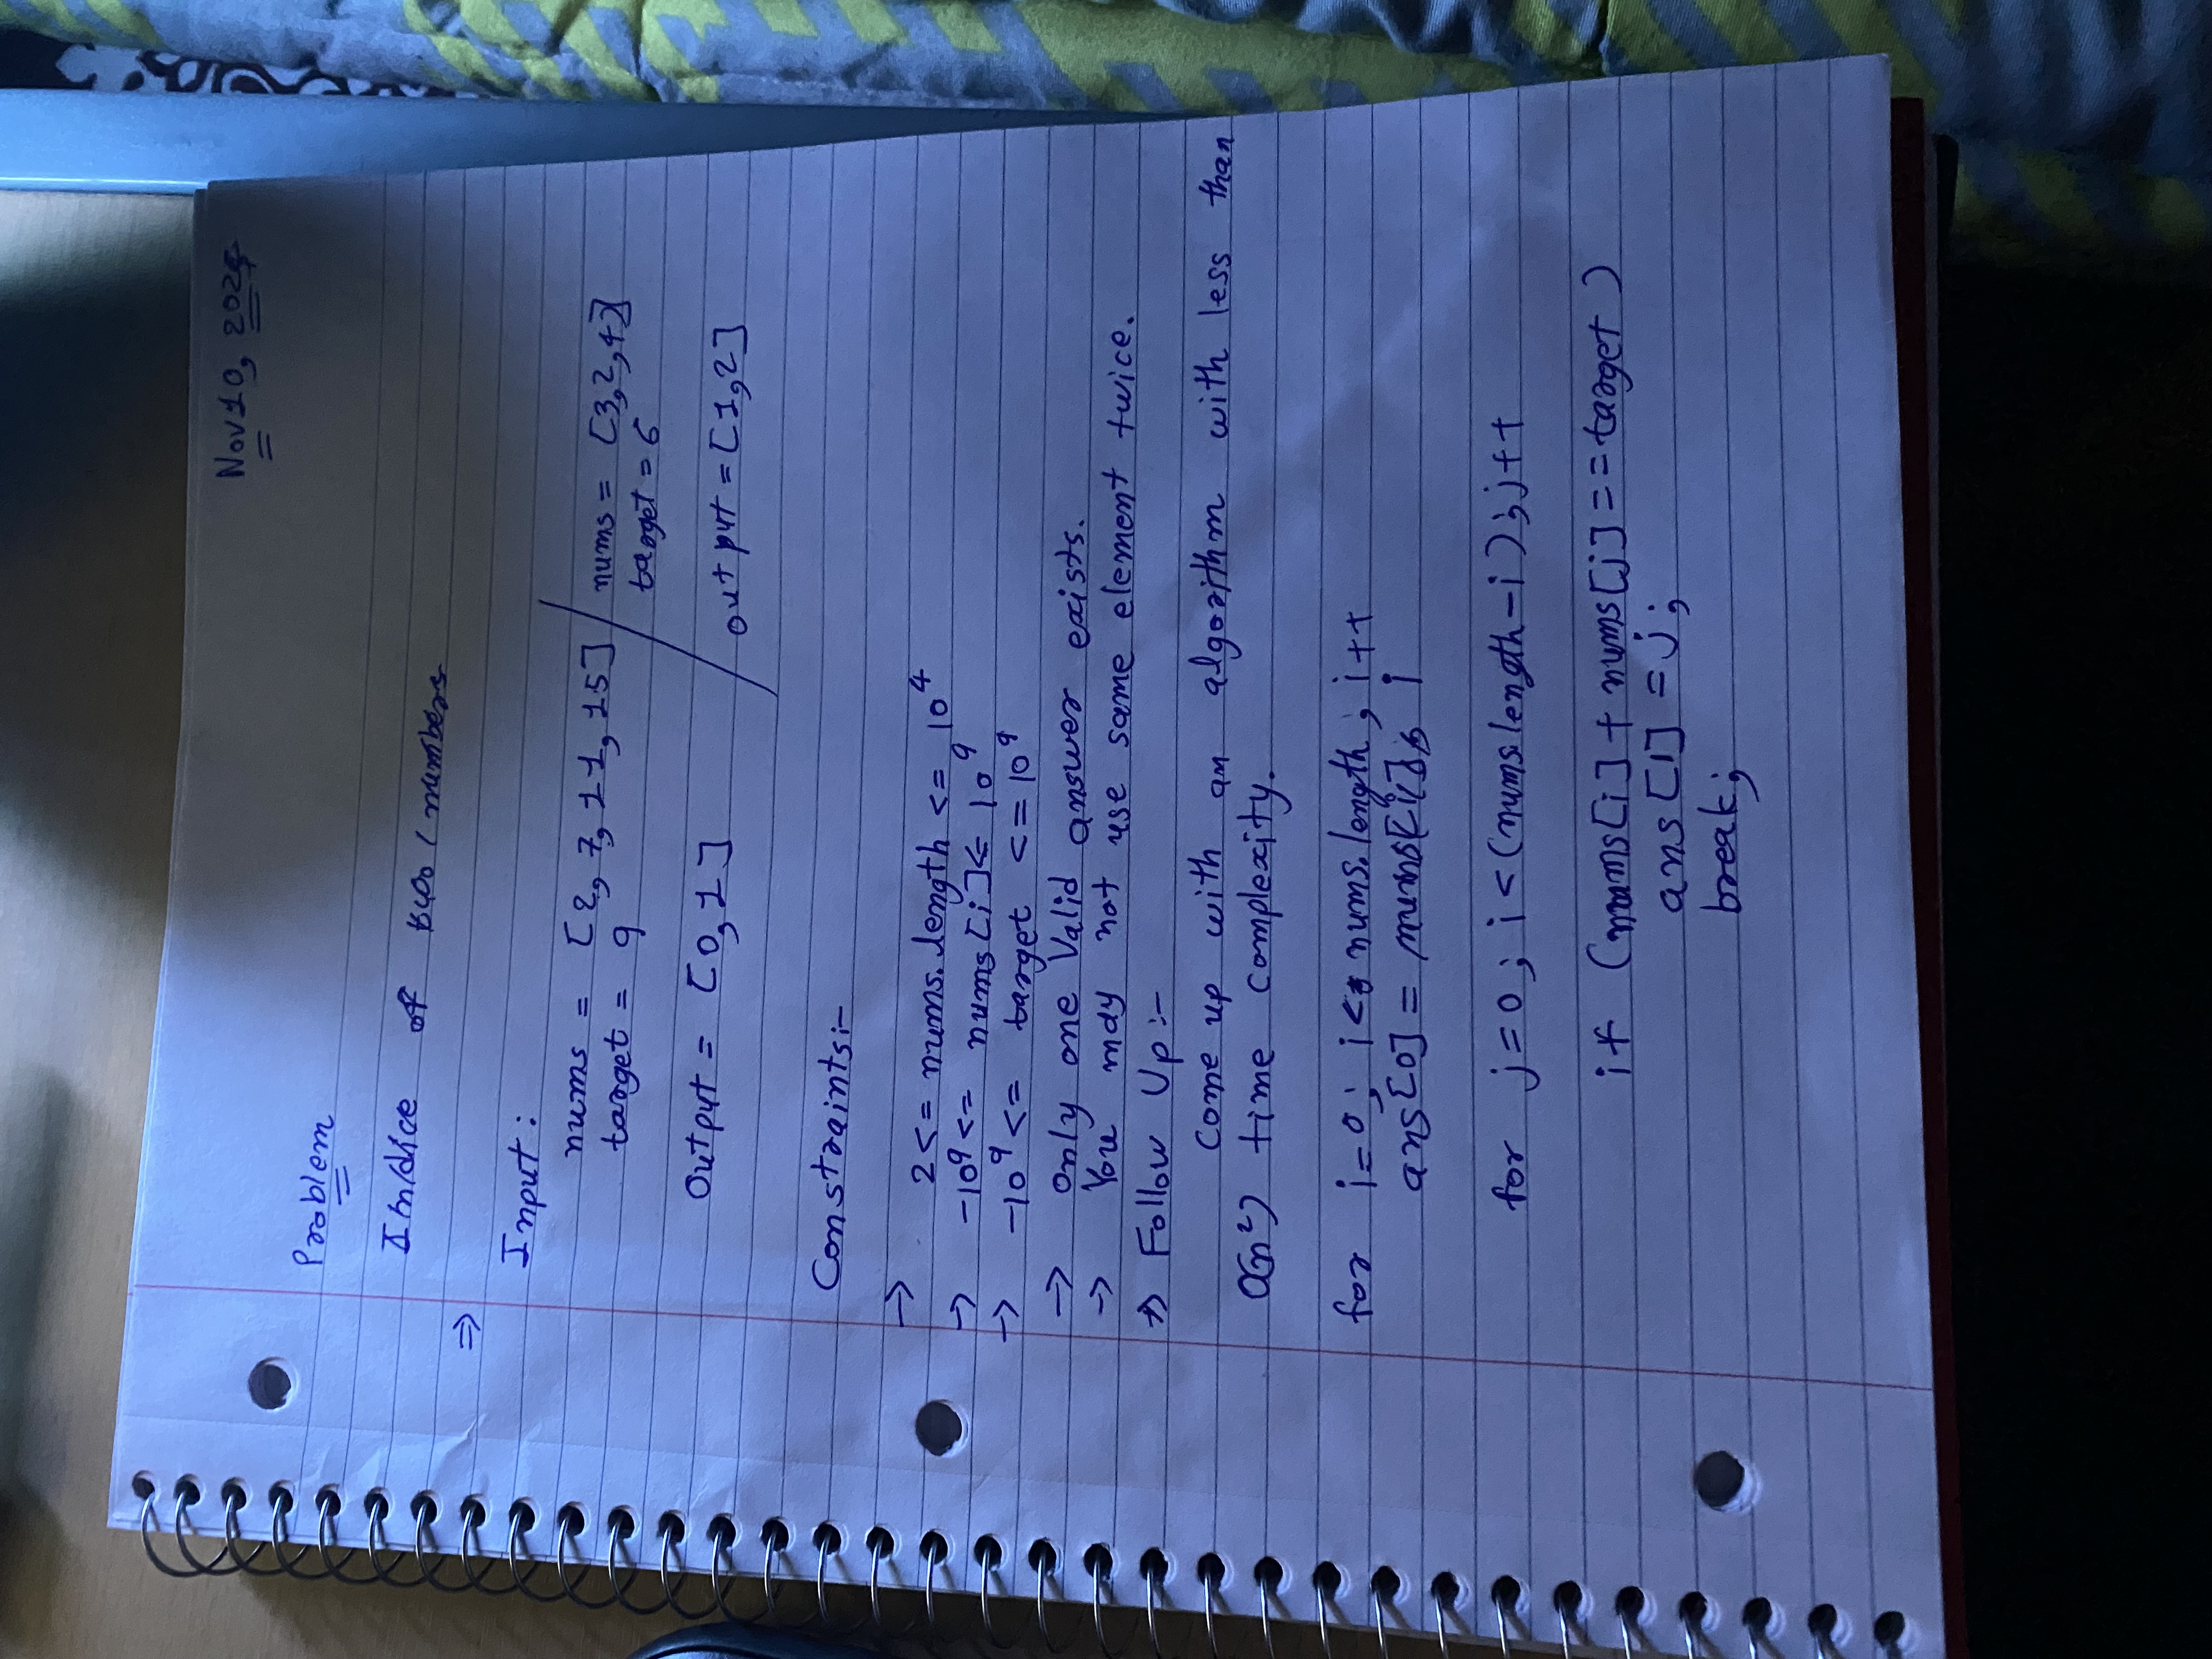 Nov 10, 2024
Problem
Indice of two numbers
⇒
Input:
nums = [2, 7, 11, 15] / nums = [3,2,4]
target = 9 target = 6
Output = [0,1] output = [1,2]
Constraints:-
→
2 <= nums.length <= 10^4
→ -10^9 <= nums[i] <= 10^9
→ -10^9 <= target <= 10^9
→ Only one Valid answer exists.
→ You may not use same element twice.
⇒ Follow Up :-
Come up with an algorithm with less than
O(n²) time complexity.
for i=0; i< nums.length; i++
ans[0] = i
for j=0; i<(nums.length-i); j++
if (nums[i] + nums[j] == target)
ans[1] = j;
break;